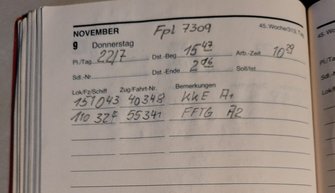 NOVEMBER Fpl 7309 45. Woche/313. Tag
9 Donnerstag
Pl./Tag 22/7 Dst.-Beg 15 47 Arb.-Zeit 10 29
Sdl.-Nr Dst.-Ende 2 16 Soll/Ist
Lok/Fz/Schiff Zug/Fahrt-Nr. Bemerkungen
151 043 40348 KKE A1
110 327 55341 FFTG A2